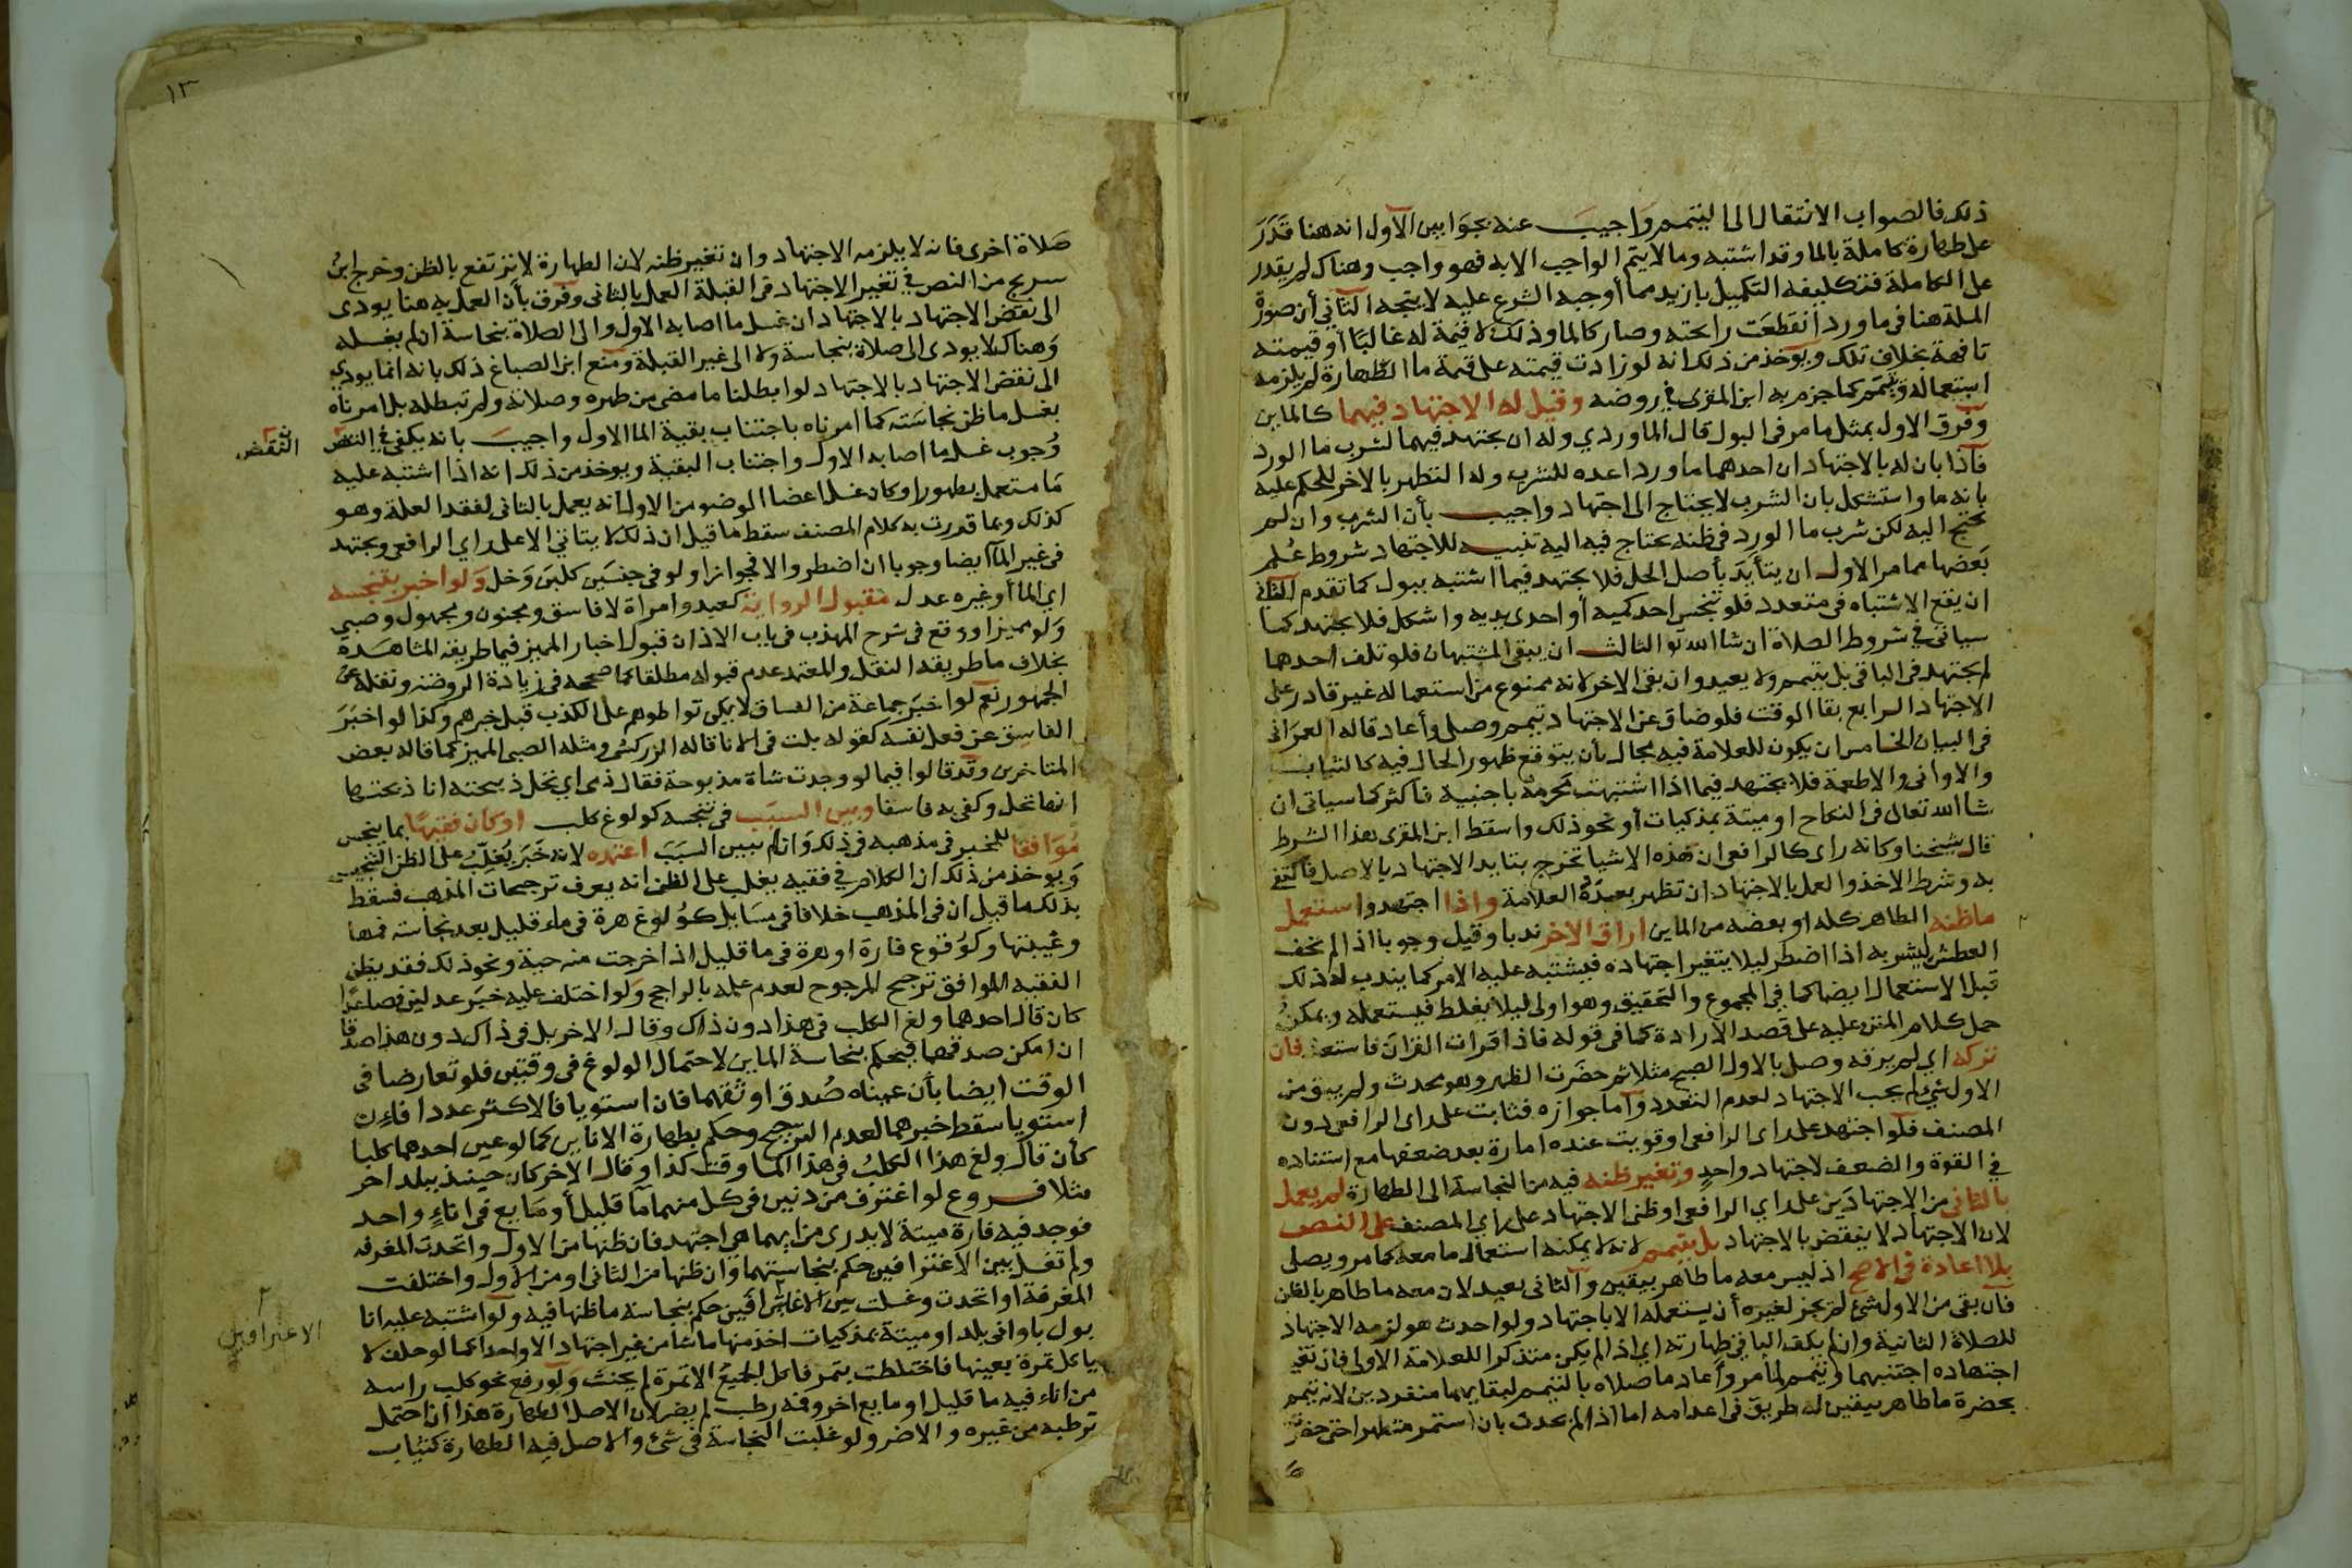 ذلك فالصواب الانتقال الى التيمم واجيب عنه بجوابين الاول انه هنا قدر
على طهارة كاملة بالما وقد اشتبه وما لا يتم الواجب الا به فهو واجب وهناك لم يقدر
على الكاملة فتكليفه التكميل بازيد مما أوجبه الشرع عليه لا يتجه الثاني أن صورة
المسلة هنا في ما ورد انقطعت رائحته وصار كالما وذلك لا قيمة له غالبا أو قيمته
تافهة بخلاف تلك ويوخذ من ذلك انه لو زادت قيمته على قيمة ما الطهارة لم يلزمه
استعماله ويتيمم كما جزم به ابن المقرى في روضه وقيل له الاجتهاد فيهما كالماين
وفرق الاول بمثل ما مر في البول قال الماوردي وله ان يجتهد فيهما لشرب ما الورد
فاذا بان له بالاجتهاد ان احدهما ما ورد اعده للشرب وله التطهر بالاخر للحكم عليه
بانه ما واستشكل بان الشرب لا يحتاج الى اجتهاد واجيب بأن الشرب وان لم
يحتج اليه لكن شرب ما الورد في ظنه يحتاج فيه اليه تنبيه للاجتهاد شروط علم
بعضها مما مر الاول ان يتأيد بأصل الحل فلا يجتهد فيما اشتبه ببول كما تقدم الثاني
ان يقع الاشتباه في متعدد فلو تنجس احد كميه أو احدى يديه واشكل فلا يجتهد كما
سياتى في شروط الصلاة ان شا الله تعالى الثالث ان يبقى المشتبهان فلو تلف احدهما
لم يجتهد في الباقى بل يتيمم ولا يعيد وان بقى الاخر لانه ممنوع من استعماله غير قادر على
الاجتهاد الرابع بقا الوقت فلو ضاق عن الاجتهاد تيمم وصلى وأعاد قاله العمرانى
في البيان الخامس ان يكون للعلامة فيه مجال بأن يتوقع ظهور الحال فيه كالثياب
والاوانى والاطعمة فلا يجتهد فيما اذا اشتبهت محرمة باجنبية فأكثر كما سياتى ان
شا الله تعالى في النكاح او ميتة بمذكيات أو نحو ذلك واسقط ابن المقرى هذا الشرط
قال شيخنا وكانه راى كالرافعى ان هذه الاشيا تخرج بتايد الاجتهاد بالاصل فاكتفى
به وشرط الاخذ والعمل بالاجتهاد ان تظهر بعده العلامة واذا اجتهد واستعمل
ماظنه الطاهر كله او بعضه من الماين اراق الاخر ندبا وقيل وجوبا اذا لم يخف
العطش ليشربه اذا اضطر ليلا يتغير اجتهاده فيشتبه عليه الامر كما يندب له ذلك
قبل الاستعمال ايضا كما في المجموع والتحقيق وهو اولى ليلا يغلط فيستعمله ويمكن
حمل كلام المتن عليه على قصد الارادة كما في قوله فاذا قرات القران فاستعذ فان
تركه اي لم يرقه وصلى بالاول الصبح مثلا ثم حضرت الظهر وهو محدث ولم يبق من
الاول شي لم يجب الاجتهاد لعدم التعدد وأما جوازه فثابت على راى الرافعى دون
المصنف فلو اجتهد على راى الرافعى او قويت عنده امارة بعد ضعفها مع استناده
في القوة والضعف لاجتهاد واحد وتغير ظنه فيه من النجاسة الى الطهارة لم يعمل
بالثانى من الاجتهادين على راي الرافعى او ظنى الاجتهاد على رأي المصنف على النص
لان الاجتهاد لا ينقض بالاجتهاد بل يتيمم لانه لا يمكنه استعمال ما معه كما مر ويصلى
بلا اعادة في الاصح اذ ليس معه ما طاهر بيقين والثانى يعيد لان معه ما طاهر بالظن
فان بقى من الاول شي لم يجز لغيره أن يستعمله الا باجتهاد ولو احدث هو لزمه الاجتهاد
للصلاة الثانية وان لم يكف الباقي طهارته اي اذا لم يكن متذكرا للعلامة الاولى فان تغير
اجتهاده اجتنبهما ويتيمم لما مر وأعاد ما صلاه بالتيمم لبقايهما منفردين لانه تيمم
بحضرة ما طاهر بيقين له طريق في اعدامه اما اذا لم يحدث بان استمر متطهرا حتى حضرت
١٣
صلاة اخرى فانه لا يلزمه الاجتهاد وان تغير ظنه لان الطهارة لا ترتفع بالظن وخرج ابن
سريج من النص في تغير الاجتهاد في القبلة العمل بالثانى وفرق بأن العمل به هنا يودى
الى نقض الاجتهاد بالاجتهاد ان غسل ما اصابه الاول والى الصلاة بنجاسة ان لم يغسله
وهناك لا يودى الى صلاة بنجاسة ولا الى غير القبلة ومنع ابن الصباغ ذلك بانه انما يودي
الى نقض الاجتهاد بالاجتهاد لو ابطلنا ما مضى من طهره وصلاته ولم نبطله بل امرناه
بغسل ما ظن نجاسته كما امرناه باجتناب بقية الما الاول واجيب بانه يكفى في النقض
النقض
وجوب غسل ما اصابه الاول واجتناب البقية ويوخذ من ذلك انه اذا اشتبه عليه
ما مستعمل بطهور او كان غسل اعضا الوضو من الاول انه يعمل بالثانى لفقد العلة وهو
كذلك وبما قررت به كلام المصنف سقط ما قيل ان ذلك لا يتاتى الا على راي الرافعى ويجتهد
في غير المآ ايضا وجوبا ان اضطر والا فجوازا ولو في جنسين كلبن وخل ولو اخبر بتنجسه
اي الما أو غيره عدل مقبول الرواية كعبد وامراة لا فاسق ومجنون ومجهول وصبي
ولو مميزا ووقع في شرح المهذب في باب الاذان قبول اخبار المميز فيما طريقه المشاهدة
بخلاف ما طريقه النقل والمعتمد عدم قبوله مطلقا كما صححه في زيادة الروضة ونقله عن
الجمهور نعم لو اخبر جماعة من الفساق لا يمكن تواطوهم على الكذب قبل خبرهم وكذا لو اخبر
الفاسق عن فعل نفسه كقوله بلت في الانا قاله الزركشى ومثله الصبى المميز كما قاله بعض
المتاخرين وقد قالوا فيما لو وجدت شاة مذبوحة فقال ذمى اي تحل ذبيحته انا ذبحتها
انها تحل وكفى به فاسقا وبين السبب في تنجسه كولوغ كلب او كان فقيها بما ينجس
موافقا للمخبر في مذهبه في ذلك وان لم يبين السبب اعتمده لانه خبر يغلب على الظن التنجس
ويوخذ من ذلك ان الكلام في فقيه يغلب على الظن انه يعرف ترجيحات المذهب فسقط
بذلك ما قيل ان في المذهب خلافا في مسايل كولوغ هرة في ماء قليل بعد نجاسة فمها
وغيبتها وكوقوع فارة او هرة في ما قليل اذا خرجت منه حية ونحو ذلك فقد يظن
الفقيه الموافق ترجيح المرجوح لعدم علمه بالراجح ولو اختلف عليه خبر عدلين فصاعدا
كان قال احدهما ولغ الكلب في هذا دون ذاك وقال الاخر بل في ذاك دون هذا صدقا
ان امكن صدقهما فيحكم بنجاسة الماين لاحتمال الولوغ في وقتين فلو تعارضا في
الوقت ايضا بأن عيناه صدق اوثقهما فان استويا فالاكثر عددا فان
استويا سقط خبرهما لعدم الترجيح وحكم بطهارة الاناين كما لو عين احدهما كلبا
كأن قال ولغ هذا الكلب في هذا الما وقت كذا وقال الاخر كان حينئذ ببلد اخر
مثلا فروع لو اغترف من دنين في كل منهما ما قليل أو مايع في اناء واحد
فوجد فيه فارة ميتة لا يدرى من ايهما هى اجتهد فان ظنها من الاول واتحدت المغرفة
ولم تغسل بين الاغترافين حكم بنجاستهما وان ظنها من الثانى او من الاول واختلفت
المغرفة او اتحدت وغسلت بين الاغترافين حكم بنجاسة ما ظنها فيه ولو اشتبه عليه انا
الاغترافين
بول باوانى بلد او ميتة بمذكيات اخذ منها ما شا من غير اجتهاد الا واحدا كما لو حلف لا
ياكل تمرة بعينها فاختلطت بتمر فاكل الجميع الا تمرة لم يحنث ولو رفع نحو كلب راسه
من اناء فيه ما قليل او مايع اخر وفمه رطب لم يضر لان الاصل الطهارة هذا ان احتمل
ترطبه من غيره والا ضر ولو غلبت النجاسة في شئ والاصل فيه الطهارة كثياب